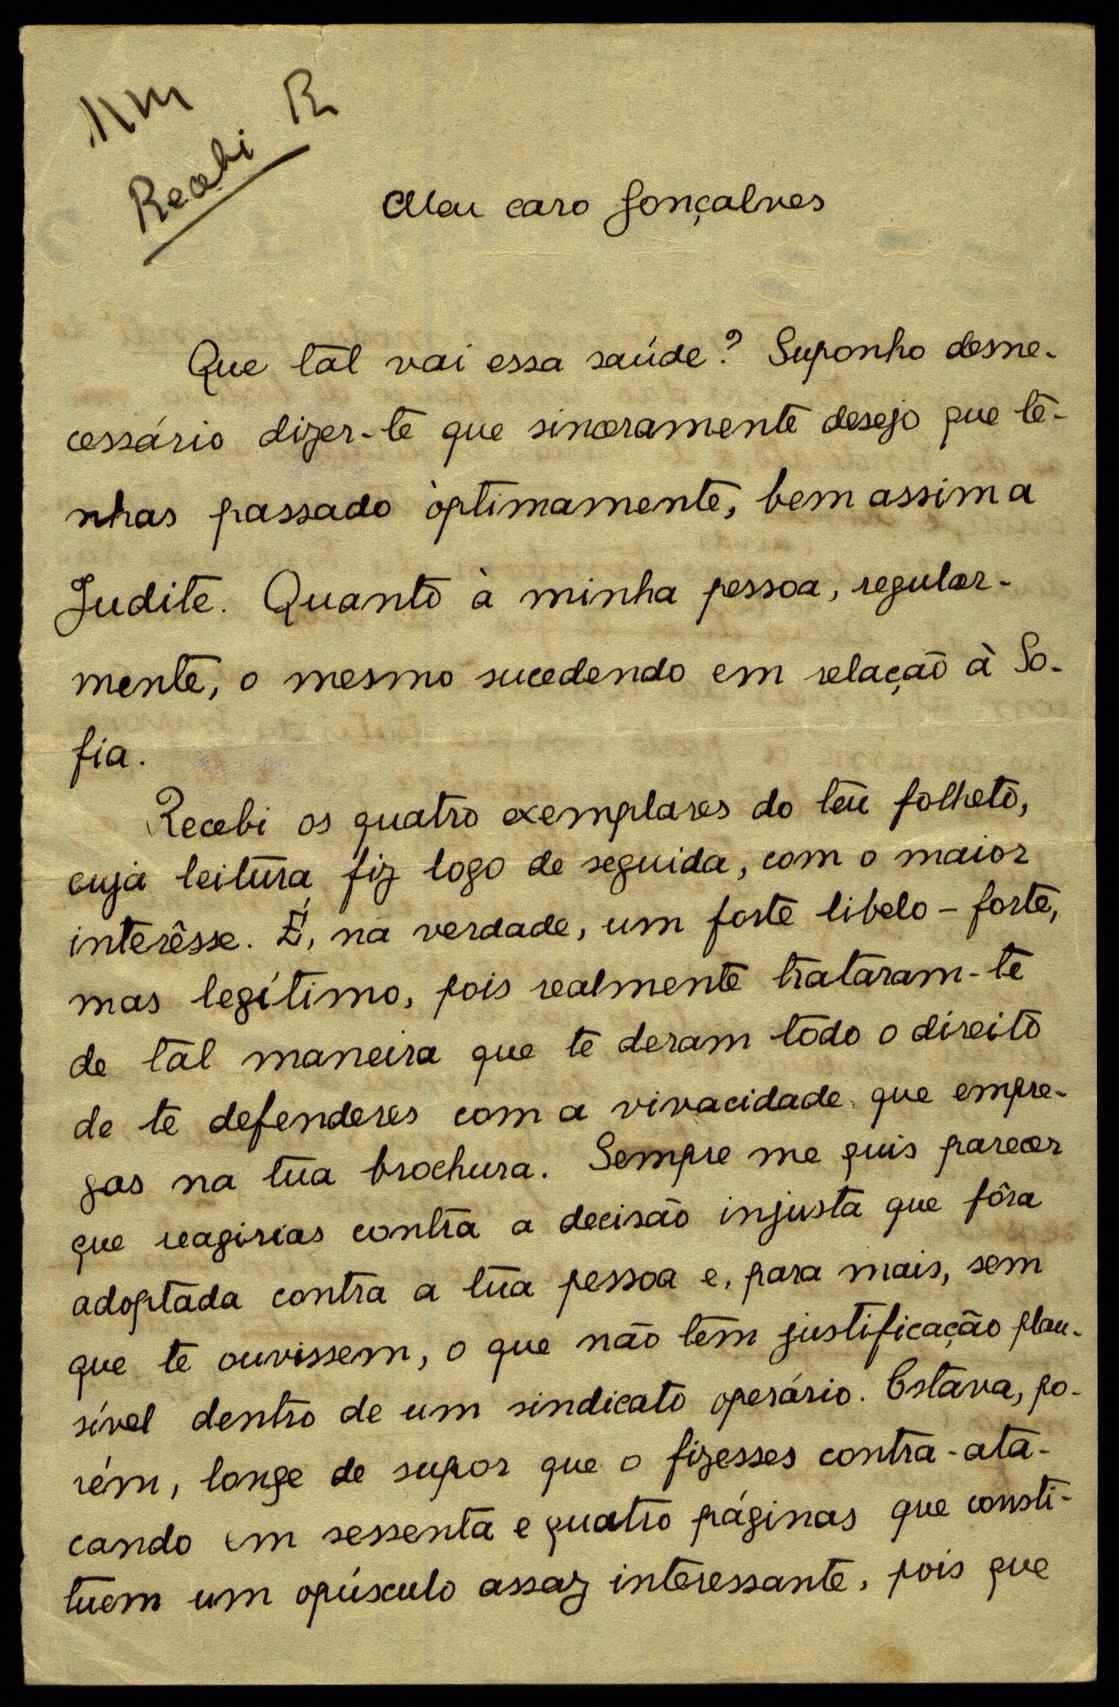 Recebi R
Meu caro Gonçalves
Que tal vai essa saúde? Suponho desne-
cessário dizer-te que sinceramente desejo que te-
nhas passado òptimamente, bem assim a
Judite. Quanto à minha pessoa, regular-
mente, o mesmo sucedendo em relação à So-
fia.
Recebi os quatro exemplares do teu folheto,
cuja leitura fiz logo de seguida, com o maior
interêsse. É, na verdade, um forte libelo - forte,
mas legítimo, pois realmente trataram-te
de tal maneira que te deram todo o direito
de te defenderes com a vivacidade que empre-
gas na tua brochura. Sempre me quis parecer
que reagirias contra a decisão injusta que fôra
adoptada contra a tua pessoa e, para mais, sem
que te ouvissem, o que não tem justificação plau-
sível dentro de um sindicato operário. Estava, po-
rém, longe de supor que o fizesses contra-ata-
cando em sessenta e quatro páginas que consti-
tuem um opúsculo assaz interessante, pois que